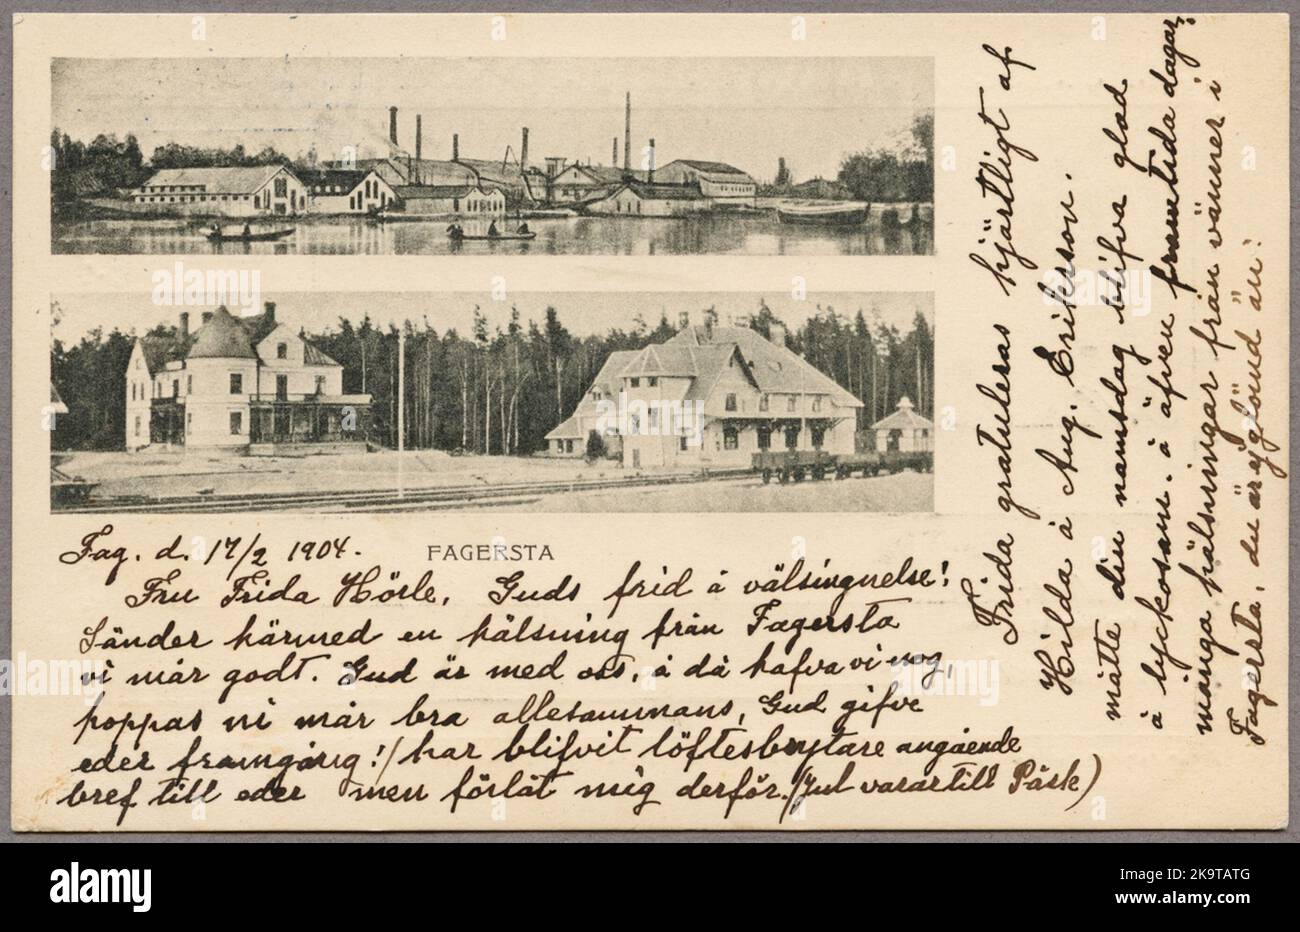 Fag. d. 17/2 1904.
FAGERSTA
Fru Frida Hörle, Guds frid å välsingnelse!
Sänder härmed en hälsning från Fagersta
vi mår godt. Gud är med oss, å då hafva vi nog,
hoppas ni mår bra allesammans, Gud gifve
eder framgång!/ har blifvit löftesbrytare angående
bref till eder men förlåt mig derför. (Jul varar till Påsk)
Frida gratuleras hjärtligt af
Hilda å Aug. Erikson.
måtte din namsdag blifva glad
å lyckosam. å äfven framtida dagar,
många hälsningar från vänner i
Fagersta, du är ej glömd än!
alamy
Image ID: 2K9TATG
www.alamy.com